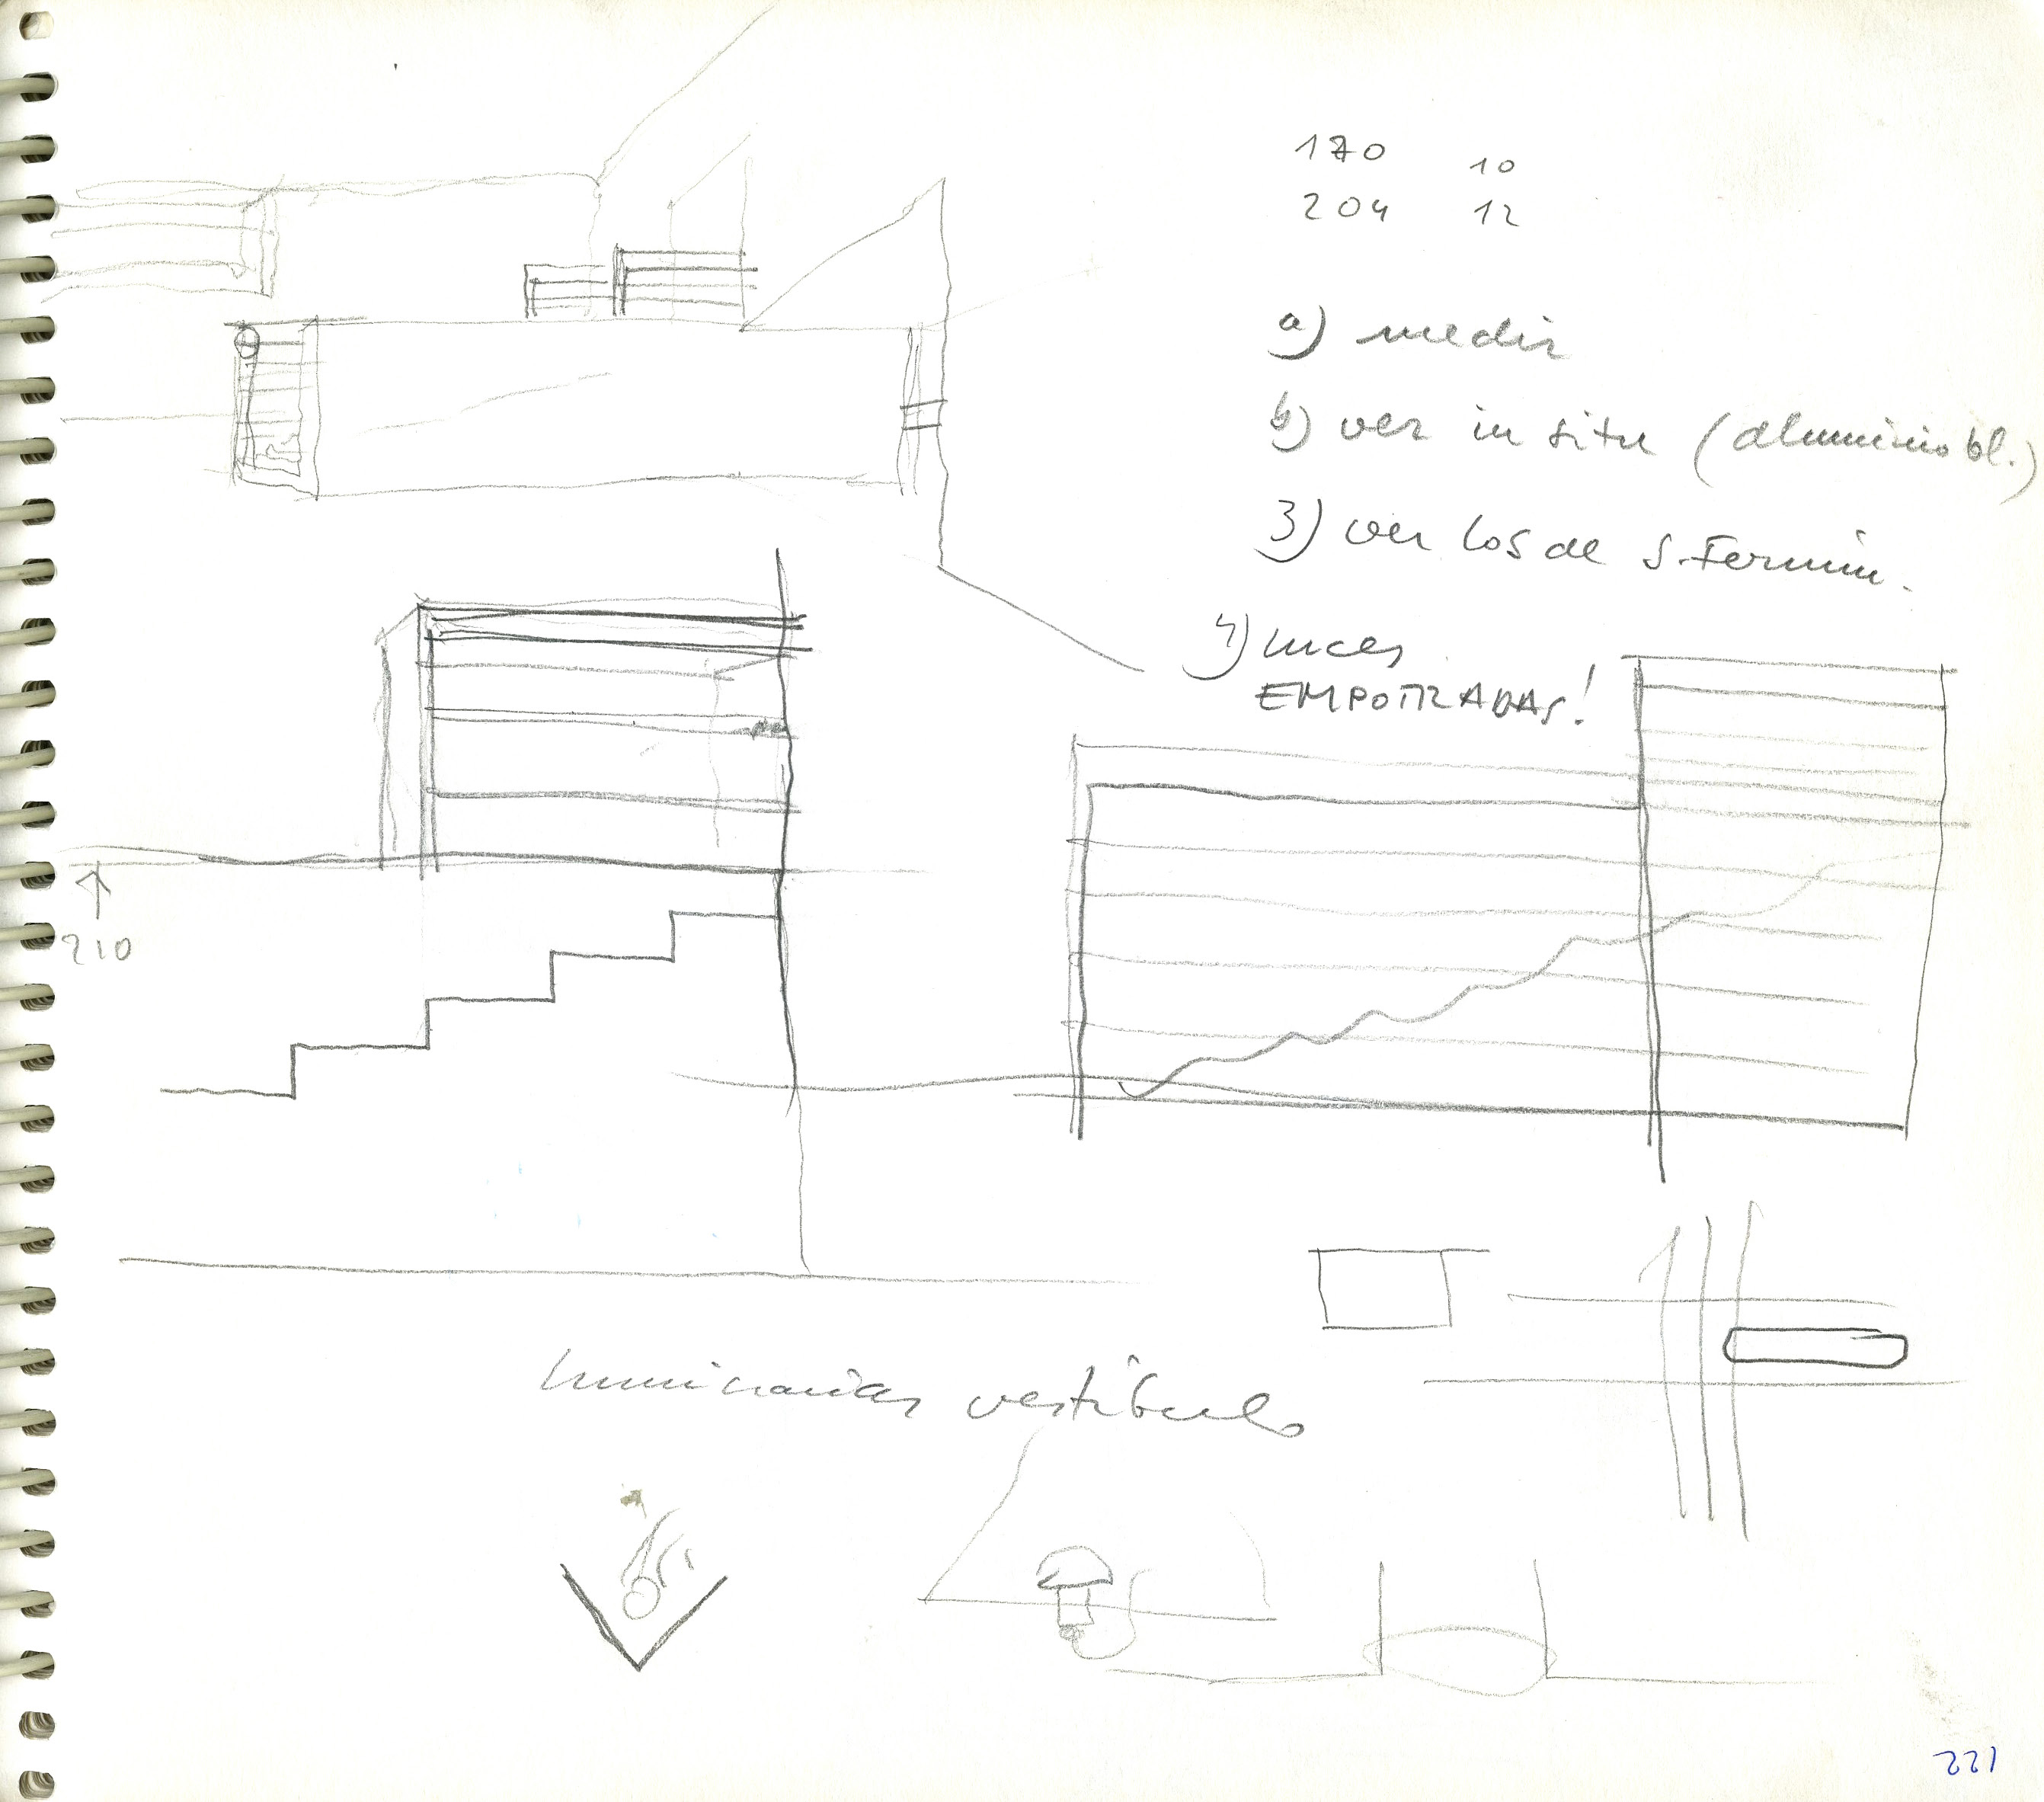 170 10
204 12
a) medir
b) ver in situ (aluminio bl.)
3) ver los de S. Fermin.
4) luces
EMPOTRADAS!
210
luminarias vestíbulo
221